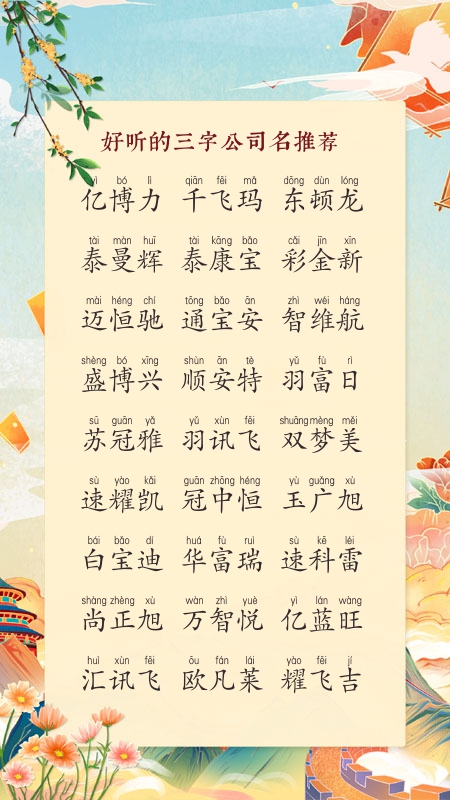 好听的三字公司名推荐
yì bó lì qiān fēi mǎ dōng dùn lóng
亿博力 千飞玛 东顿龙
tài màn huī tài kāng bǎo cǎi jīn xīn
泰曼辉 泰康宝 彩金新
mài héng chí tōng bǎo ān zhì wéi háng
迈恒驰 通宝安 智维航
shèng bó xīng shùn ān tè yǔ fù rì
盛博兴 顺安特 羽富日
sū guān yǎ yǔ xùn fēi shuāng mèng měi
苏冠雅 羽讯飞 双梦美
sù yào kǎi guān zhōng héng yù guǎng xù
速耀凯 冠中恒 玉广旭
bái bǎo dí huá fù ruì sù kē léi
白宝迪 华富瑞 速科雷
shàng zhèng xù wàn zhì yuè yì lán wàng
尚正旭 万智悦 亿蓝旺
huì xùn fēi ōu fán lái yào fēi jí
汇讯飞 欧凡莱 耀飞吉